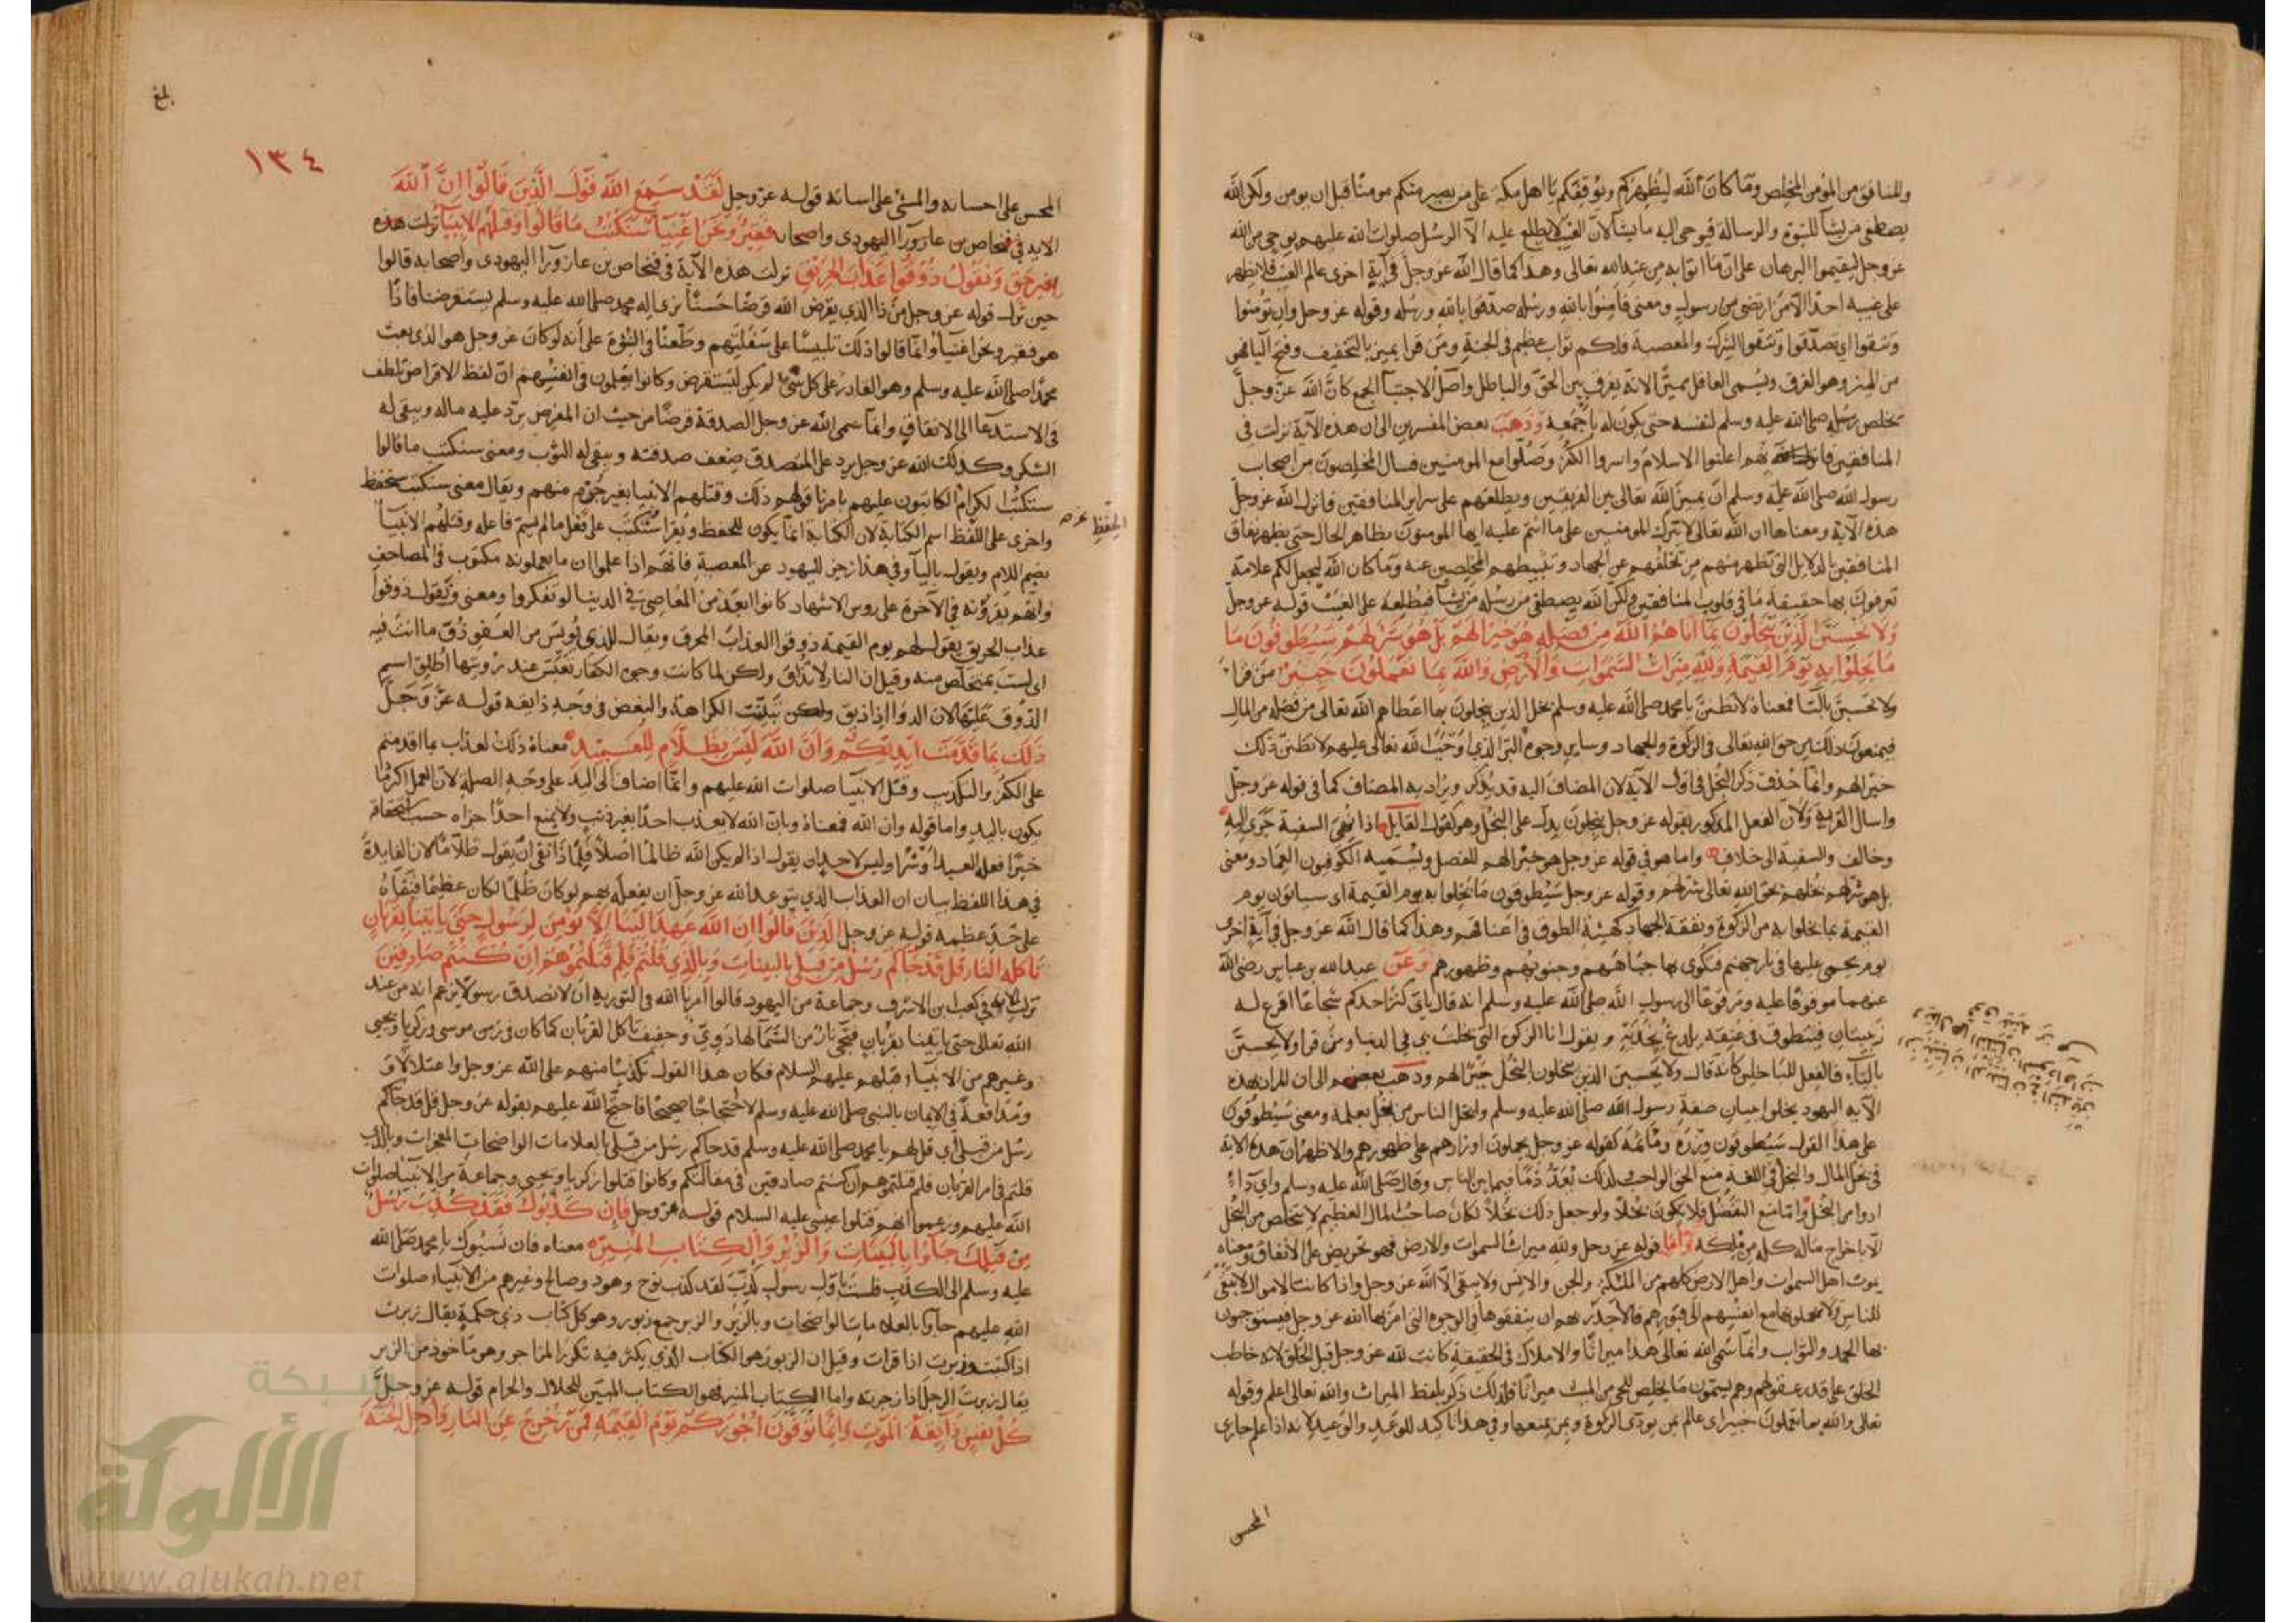 والمنافق من المؤمن المخلص وما كان الله ليظهركم ويوقفكم يا اهل مكة على من يصير منكم مومنا قبل ان يومن ولكن الله
يصطفى من يشآ للنبوة والرسالة فيوحى اليه ما يشآ لان الغيب لا يطلع عليه الا الرسل صلوات الله عليهم بوحى من الله
عز وجل ليقيموا البرهان على ان ما اتوا به من عند الله تعالى وهذا كما قال الله عز وجل فى آية اخرى عالم الغيب فلا يظهر
على غيبه احدا الا من ارتضى من رسول ومعنى فآمنوا بالله ورسله صدقوا بالله ورسله وقوله عز وجل وان تؤمنوا
وتتقوا اى تصدقوا وتتقوا الشرك والمعصية فلكم ثواب عظيم فى الجنة ومن قرا يميز بالتخفيف وفتح اليا فهو
من الميز وهو الفرق ويسمى العاقل مميزا لانه يفرق بين الحق والباطل واصل الاجتبآ الجمع كان الله عز وجل
تخلص رسله صلى الله عليه وسلم لنفسه حتى يكون له باجمعه وذهب بعض المفسرين الى ان هذه الآية نزلت فى
المنافقين فانهم اعلنوا الاسلام واسروا الكفر وصلوا مع المومنيين فسال المخلصون من اصحاب
رسول الله صلى الله عليه وسلم ان يميز الله تعالى بين الفريقين ويطلعهم على سراير المنافقين فانزل الله عز وجل
هذه الآية ومعناها ان الله تعالى لا يترك المومنيين على ما انتم عليه ايها المومنون بظاهر الحال حتى يظهر نفاق
المنافقين بالدلايل التى تظهر منهم من تخلفهم عن الجهاد وتثبيطهم المخلصين عنه وما كان الله ليجعل لكم علامة
تعرفون بها حقيقة ما فى قلوب المنافقين ولكن الله يصطفى من رسله من يشآ فيطلعه على الغيب قوله عز وجل
ولا تحسبن الذين يبخلون بما اتاهم الله من فضله هو خيرا لهم بل هو شر لهم سيطوقون ما
ما بخلوا به يوم القيمة ولله ميراث السموات والارض والله بما تعملون خبير من قرا
ولا تحسبن بالتا فمعناه لا تظنن يا محمد صلى الله عليه وسلم بخل الذين يبخلون بما اعطاهم الله تعالى من فضله من المال
فيمنعون ذلك من حق الله تعالى فى الزكوة والجهاد وساير وجوه البر الذى اوجب الله تعالى عليهم لا تظنن ذلك
خيرا لهم وانما حذف ذكر البخل فى اول الآية لان المضاف اليه قد يذكر ويراد به المضاف كما فى قوله عز وجل
واسال القرية ولان الفعل المذكور بقوله عز وجل يبخلون يدل على البخل وهو كقول القايل اذا نهى السفيه جرى اليه
وخالف والسفيه الى خلاف واما هو فى قوله عز وجل هو خيرا لهم للفصل ويسميه الكوفيون العماد ومعنى
بل هو شر لهم بخلهم بحق الله تعالى شر لهم وقوله عز وجل سيطوقون ما بخلوا به يوم القيمة اى سياتون يوم
القيمة بما بخلوا به من الزكوة ونفقة الجهاد كهيئة الطوق فى اعناقهم وهذا كما قال الله عز وجل فى آية اخرى
يوم يحمى عليها فى نار جهنم فتكوى بها جباههم وجنوبهم وظهورهم وعن عبد الله بن عباس رضى الله
عنهما موقوفا عليه ومرفوعا الى رسول الله صلى الله عليه وسلم انه قال ياتى كنز احدكم شجاعا اقرع له
زبيبتان فيتطوق فى عنقه يلدغ بخديه ويقول انا الزكوة التى بخلت بى فى الدنيا ومن قرا ولا يحسبن
باليآء فالفعل للباخلين كانه قال ولا يحسبن الذين يبخلون البخل خيرا لهم وذهب بعضهم الى ان المراد بهذه
الآية اليهود بخلوا ببيان صفة رسول الله صلى الله عليه وسلم وابخل الناس من بخل بعلمه ومعنى سيطوقون
على هذا القول سيطوقون وزره ومأثمه كقوله عز وجل يحملون اوزارهم على ظهورهم والاظهر ان هذه الاية
فى بخل المال والبخل فى اللغة منع الحق الواجب لذلك يعد ذما فيما بين الناس وقال صلى الله عليه وسلم واى دآء
ادوا من البخل واما منع التفضل فلا يكون بخلا ولو جعل ذلك بخلا لكان صاحب المال العظيم لا يتخلص من البخل
الا باخراج ماله كله من ملكه واما قوله عز وجل ولله ميراث السموات والارض فهو تحريض على الانفاق ومعناه
يموت اهل السموات واهل الارض كلهم من الملئكة والجن والانس ولا يبقى الا الله عز وجل واذا كانت الاموال لا تبقى
للناس ولا يحملونها مع انفسهم الى قبورهم فالاجدر بهم ان ينفقوها فى الوجوه التى امر بها الله عز وجل فيستوجبون
بها الحمد والثواب وانما سمى الله تعالى هذا ميراثا والاملاك فى الحقيقة كانت لله عز وجل قبل الخلق لانه خاطب
الخلق على قدر عقولهم وهم يسمون ما يخلص للحى من الميت ميراثا فلذلك ذكر بلفظ الميراث والله تعالى اعلم وقوله
تعالى والله بما تعملون خبير اى عالم بمن يودى الزكوة وبمن يمنعها وفى هذا تاكيد للوعد والوعيد لانه اذا علم جازى
المحسن
بلغ
١٣٤
المحسن على احسانه والمسئ على اساته قوله عز وجل لقد سمع الله قول الذين قالوا ان الله
فقير ونحن اغنيآ سنكتب ما قالوا وقتلهم الانبيآ نزلت هذه الايه فى فنحاص بن عازورآ اليهودى واصحابه
بغير حق ونقول ذوقوا عذاب الحريق نزلت هذه الآية فى فنحاص بن عازورآ اليهودى واصحابه قالوا
حين نزل قوله عز وجل من ذا الذى يقرض الله قرضا حسنا نرى اله محمد صلى الله عليه وسلم يستقرضنا فاذا
هو فقير ونحن اغنيآ وانما قالوا ذلك تلبيسا على سفلتهم وطعنا فى النبوة على انه لو كان عز وجل هو الذى بعث
محمدا صلى الله عليه وسلم وهو القادر على كل شئ لم يكن ليستقرض وكانوا يعلمون فى انفسهم ان لفظ الاقراض تلطف
فى الاستدعآ الى الانفاق وانما سمى الله عز وجل الصدقة قرضا من حيث ان المقرض يرد عليه ماله ويبقى له
الشكر وكذلك الله عز وجل يرد على المتصدق ضعف صدقته ويبقى له الثوب ومعنى سنكتب ما قالوا
سنكتب الكرام الكاتبون عليهم بامرنا قولهم ذلك وقتلهم الانبيا بغير جرم منهم ويقال معنى سنكتب سنحفظ
واجرى على اللفظ اسم الكتابة لان الكتابة انما يكون للحفظ ويقرا سنكتب على فعل ما لم يسم فاعله وقتلهم الانبيآ
بضم اللام ويقول باليآ وفى هذا زجر لليهود عن المعصية فانهم اذا علموا ان ما يعملونه مكتوب فى المصاحف
وانهم يقرؤنه فى الآخرة على روس الاشهاد كانوا ابعد من المعاصى فى الدنيا لو تفكروا ومعنى ونقول ذوقوا
عذاب الحريق يقول لهم يوم القيمة ذوقوا العذاب المحرق ويقال للذى يويس من العفو ذق ما انت فيه
اى لست بمتخلص منه وقيل ان النار لا تذاق ولكن لما كانت وجوه الكفار تعبس عند روسها اطلق اسم
الذوق عليها لان الدوا اذا ذيق تبينت الكراهة والبغض فى وجه ذايقه قوله عز وجل
ذلك بما قدمت ايديكم وان الله ليس بظلام للعبيد معناه ذلك العذاب بما اقدمتم
على الكفر والتكذيب وقتل الانبيا صلوات الله عليهم وانما اضاف الى اليد على وجه الصلة لان العمل اكثر ما
يكون باليد واما قوله وان الله فمعناه وبان الله لا يعذب احدا بغير ذنب ولا يمنع احدا جزاه حسب استحقاقه
خيرا فعله العبد او شرا وليس لاحد ان يقول اذا لم يكن الله ظالما اصلا فلماذا نفى ان يقول ظلاما لان الفايدة
فى هذا اللفظ بيان ان العذاب الذى يتوعد الله عز وجل ان يفعله بهم لو كان ظلما لكان عظيما فنفاه
على حد عظمه قوله عز وجل الذين قالوا ان الله عهد الينا الا نومن لرسول حتى ياتينا بقربان
تاكله النار قل قد جاكم رسل من قبلى بالبينات وبالذى قلتم فلم قتلتموهم ان كنتم صادقين
نزلت الاية فى كعب ابن الاشرف وجماعة من اليهود قالوا امرنا الله فى التورية ان لا نصدق رسولا يزعم انه من عند
الله تعالى حتى ياتينا بقربان فتجى نار من السمآ لها دوى وحفيف تاكل القربان كما كان فى زمن موسى وزكريا ويحيى
وغيرهم من الانبياء قبلهم عليهم السلام فكان هذا القول تكذيبا منهم على الله عز وجل واعتلالا
ومدافعة فى الايمان بالنبى صلى الله عليه وسلم لا احتجاجا صحيحا فاحتج الله عليهم بقوله عز وجل قل قد جاكم
رسل من قبلى اى قل لهم يا محمد صلى الله عليه وسلم قد جاكم رسل من قبلى بالعلامات الواضحات المعجزات وبالذى
قلتم فى امر القربان فلم قتلتموهم ان كنتم صادقين فى مقالتكم وكانوا قتلوا زكريا ويحيى وجماعة من الانبيا صلوات
الله عليهم وزعموا انهم قتلوا عيسى عليه السلام قوله عز وجل فان كذبوك فقد كذب رسل
من قبلك جاؤا بالبينات والزبر والكتاب المنير معناه فان نسبوك يا محمد صلى الله
عليه وسلم الى الكذب فلست باول رسول كذب لقد كذب نوح وهود وصالح وغيرهم من الانبياء صلوات
الله عليهم جآوا بالعلامات الواضحات وبالزبر والزبر جمع زبور وهو كل كتاب ذى حكمة يقال زبرت
اذا كتبت وزبرت اذا قرات وقيل ان الزبور هو الكتاب الذى يكثر فيه ذكر المزاجر وهو ماخوذ من الزبر
يقال زبرت الرجل اذا زجرته واما الكتاب المنير فهو الكتاب المبين للحلال والحرام قوله عز وجل
كل نفس ذايقة الموت وانما توفون اجوركم يوم القيمة فمن زحزح عن النار وادخل الجنة
شبكة
الألوكة
www.alukah.net